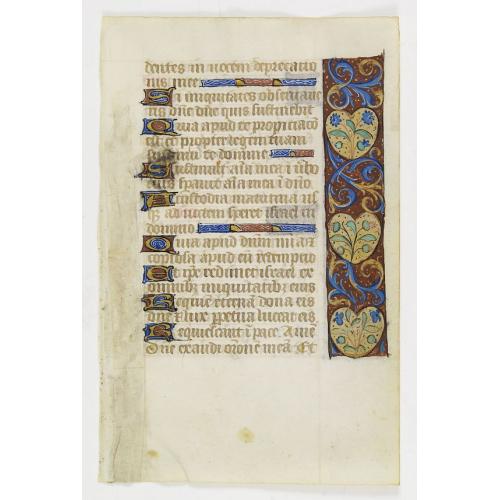 dentes in vocem deprecatio
nis mee
Si iniquitates observave
ris dne dne quis sustinebit
Quia apud te propiciacō
est et propter legem tuam
sustinui te domine
Sustinuit aīa mea ī v̄bo
eius speravit aīa mea ī dn̄o
A custodia matutina us
q̨ ad noctem speret israel in
domino
Quia apud dnm̄ mīa et
copiosa apud eū redemptio
Et ip̄e redimet israel ex
omnibus iniquitatib; eius
Requiē eternā dona eis
dn̄e et lux p̄petua luceat eis
Requiescant ī pace. Ame
Dn̄e exaudi orōne meā. Et